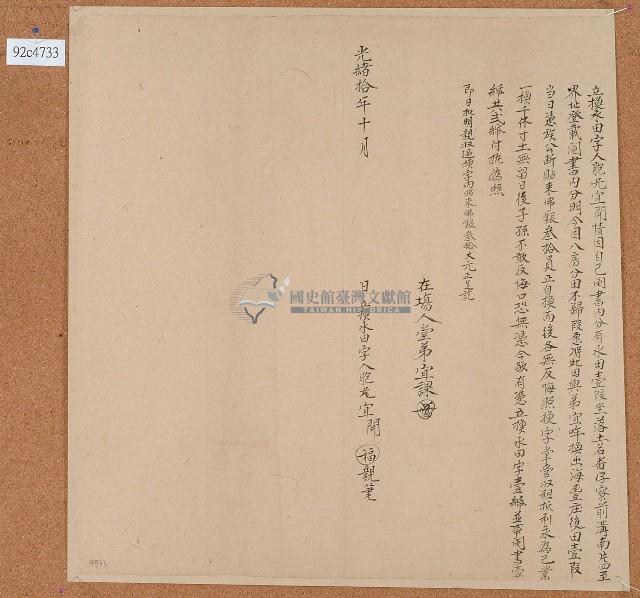 立換水田字人胞兄宜開情因自己鬮書內分有水田壹段坐落土名番仔寮前溝南片四至
界址登載鬮書內分明今因八房分田不歸段愿將此田與弟宜 換出海壹庄後田壹段
當日憑族公斷貼來佛銀叁拾員正自換而後各無反悔照換字掌管收租抵利永為己業
一換千休寸土無留日後子孫不敢反悔口恐無憑今欲有憑立換水田字壹紙並帶鬮書壹
紙共弍紙付執為照
即日批明親收過換字內貼來佛銀叁拾大元正足訖
在場人堂弟宜課
光緒拾年十月
日立換水田字人胞兄宜開
福
親筆
國史館臺灣文獻館
TAIWAN HISTORICA
92c4733
4733